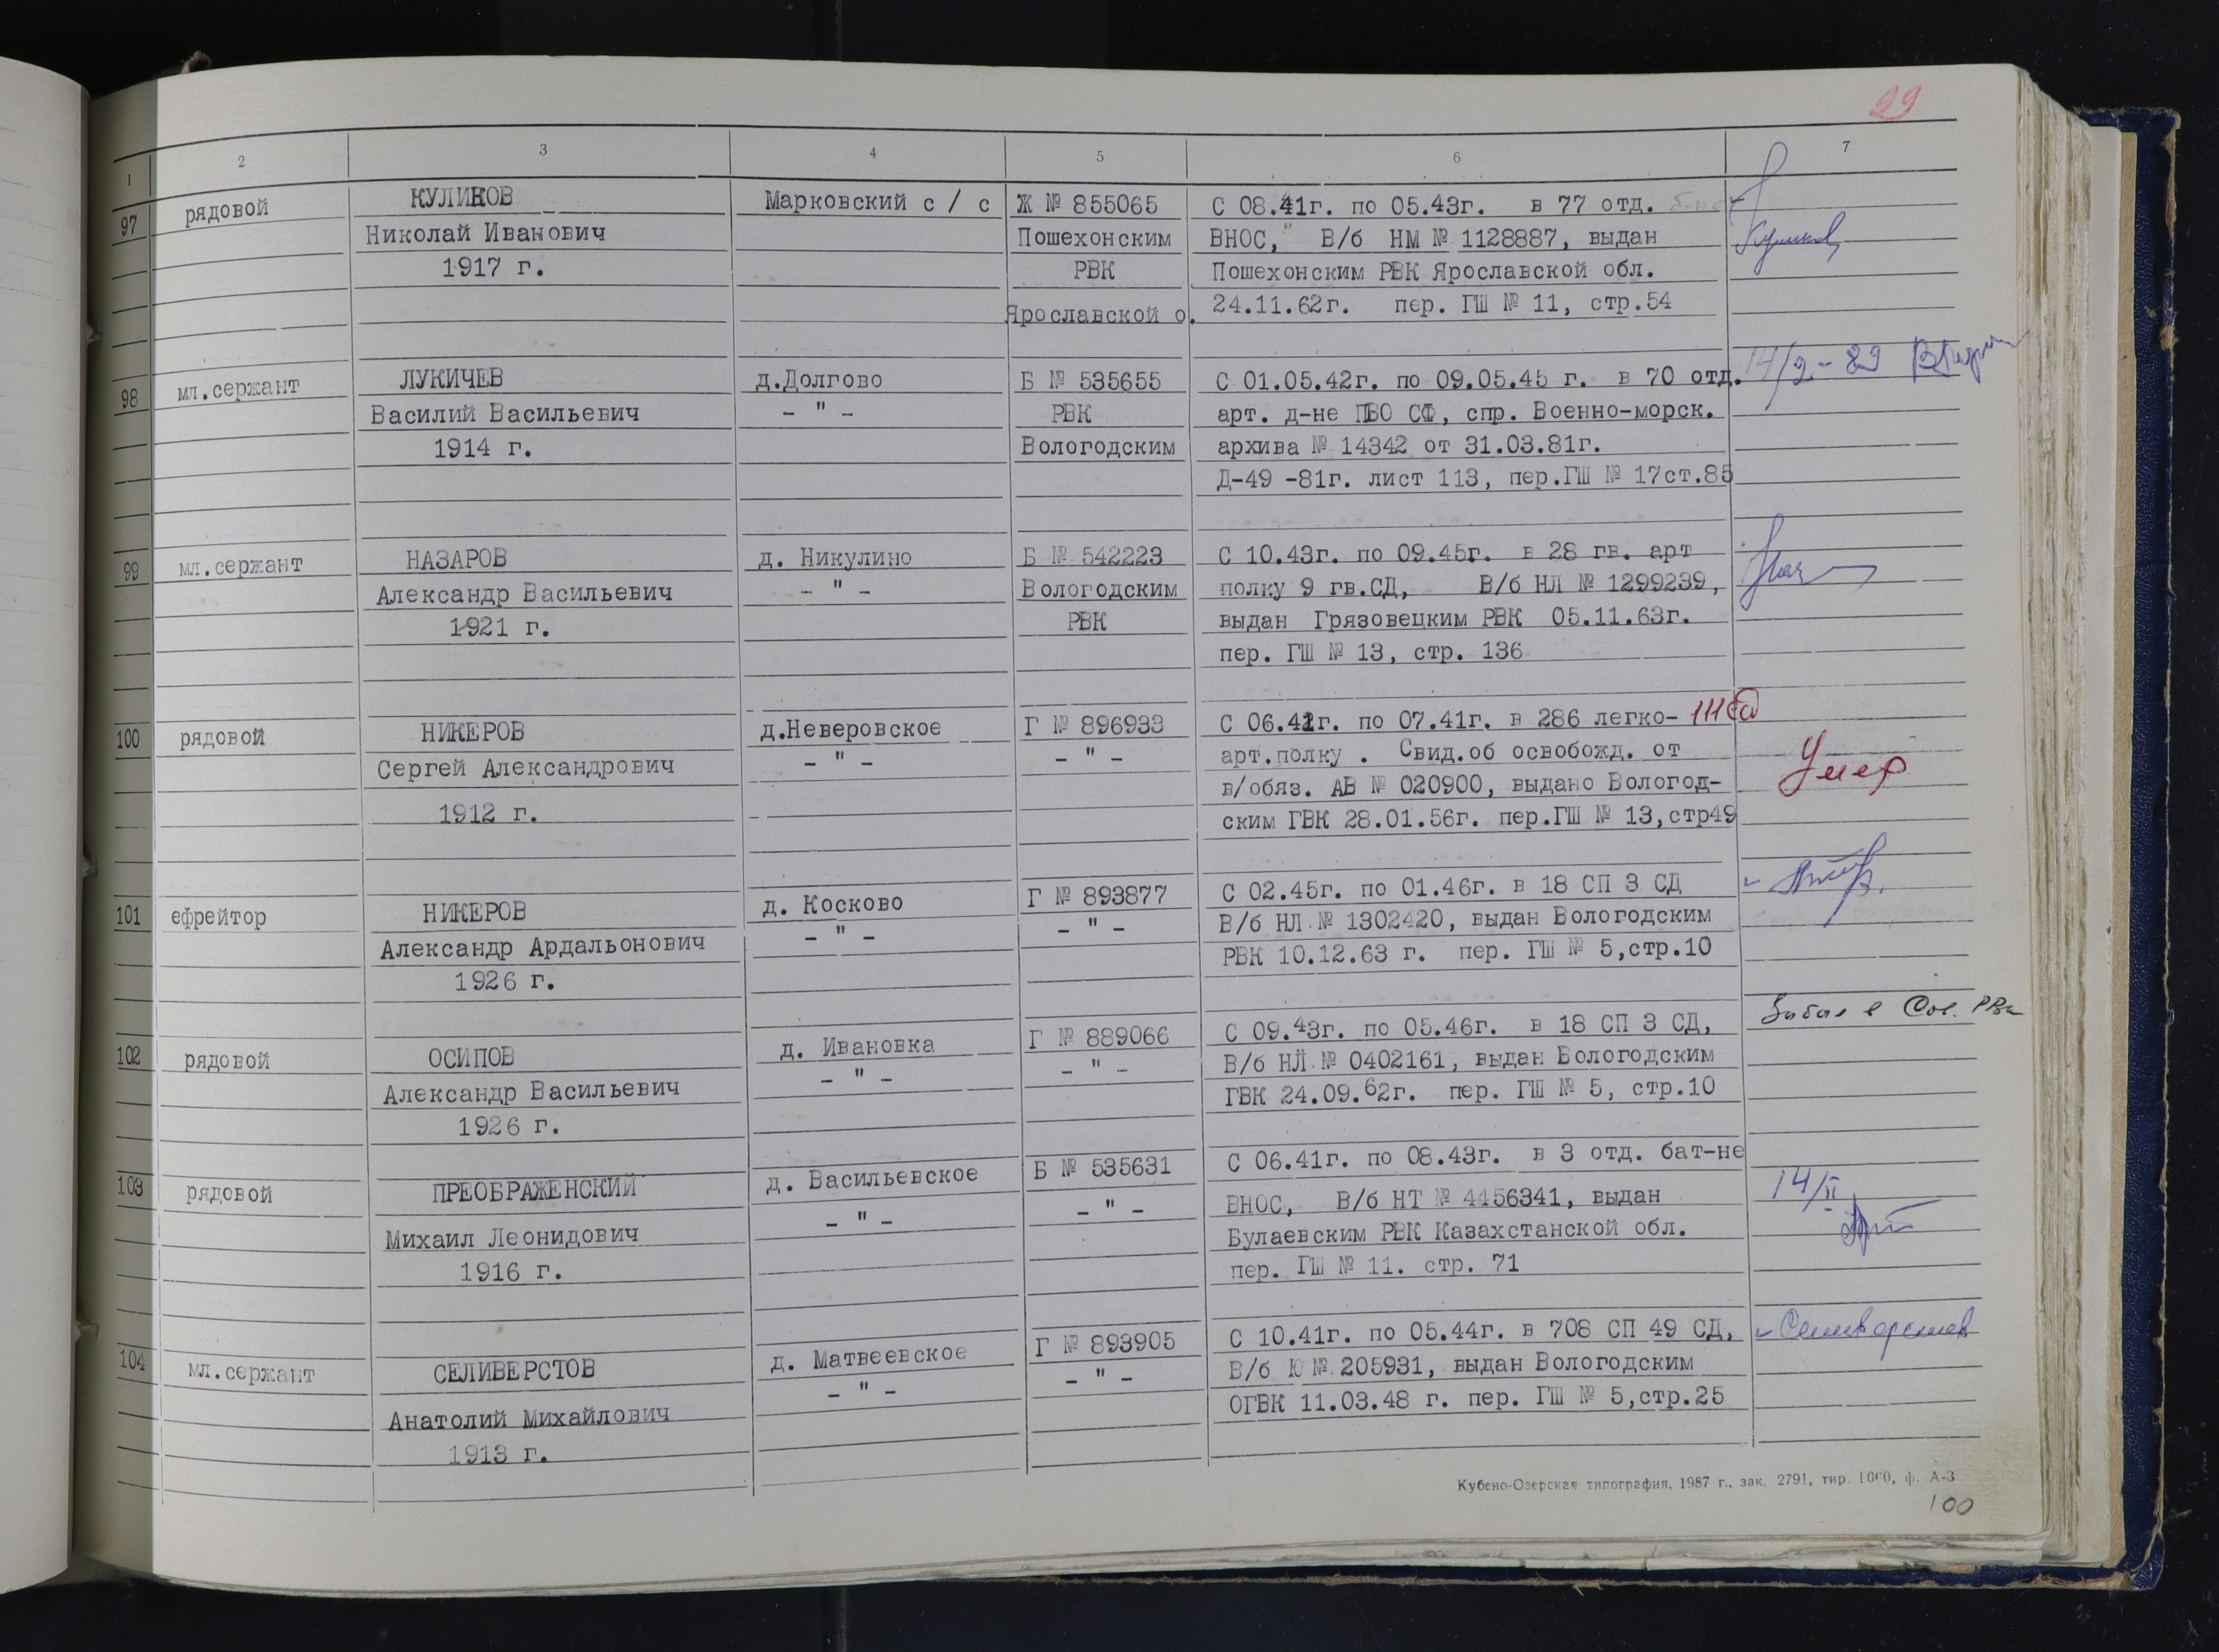 29
1 2 3 4 5 6 7
97 рядовой КУЛИКОВ Марковский с / с Ж № 855065 С 08.41г. по 05.43г. в 77 отд.
Николай Иванович Пошехонским ВНОС, В/б НМ № 1128887, выдан
1917 г. РВК Пошехонским РВК Ярославской обл.
Ярославской о. 24.11.62г. пер. ГШ № 11, стр.54
98 мл.сержант ЛУКИЧЕВ д.Долгово Б № 535655 С 01.05.42г. по 09.05.45 г. в 70 отд. 14/2-89
Василий Васильевич - " - РВК арт. д-не ПВО СФ, спр. Военно-морск.
1914 г. Вологодским архива № 14342 от 31.03.81г.
Д-49 -81г. лист 113, пер.ГШ № 17ст.85
99 мл.сержант НАЗАРОВ д. Никулино Б № 542223 С 10.43г. по 09.45г. в 28 гв. арт
Александр Васильевич - " - Вологодским полку 9 гв.СД, В/б НЛ № 1299239,
1921 г. РВК выдан Грязовецким РВК 05.11.63г.
пер. ГШ № 13, стр. 136
100 рядовой НИКЕРОВ д.Неверовское Г № 896933 С 06.41г. по 07.41г. в 286 легко- 111 сд
Сергей Александрович - " - - " - арт.полку . Свид.об освобожд. от Умер
в/обяз. АВ № 020900, выдано Вологод-
1912 г. ским ГВК 28.01.56г. пер.ГШ № 13,стр49
101 ефрейтор НИКЕРОВ д. Косково Г № 893877 С 02.45г. по 01.46г. в 18 СП 3 СД
Александр Ардальонович - " - - " - В/б НЛ № 1302420, выдан Вологодским
1926 г. РВК 10.12.63 г. пер. ГШ № 5,стр.10
102 рядовой ОСИПОВ д. Ивановка Г № 889066 С 09.43г. по 05.46г. в 18 СП 3 СД, Выбыл в Сок. РВК
Александр Васильевич - " - - " - В/б НЛ № 0402161, выдан Вологодским
1926 г. ГВК 24.09.62г. пер. ГШ № 5, стр.10
103 рядовой ПРЕОБРАЖЕНСКИЙ д. Васильевское Б № 535631 С 06.41г. по 08.43г. в 3 отд. бат-не 14/II
Михаил Леонидович - " - - " - ВНОС, В/б НТ № 4456341, выдан
1916 г. Булаевским РВК Казахстанской обл.
пер. ГШ № 11. стр. 71
104 мл.сержант СЕЛИВЕРСТОВ д. Матвеевское Г № 893905 С 10.41г. по 05.44г. в 708 СП 49 СД, Селиверстов
Анатолий Михайлович - " - - " - В/б Ю № 205931, выдан Вологодским
1913 г. ОГВК 11.03.48 г. пер. ГШ № 5,стр.25
Кубено-Озерская типография, 1987 г., зак. 2791, тир. 1000, ф. А-3
100